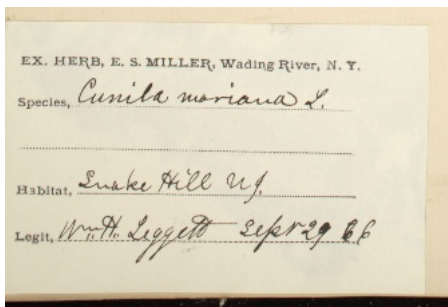 EX. HERB, E. S. MILLER, Wading River, N. Y.
Species, Cunila mariana L.
Habitat, Snake Hill NJ.
Legit, Wm. H. Leggett Sept 29 66